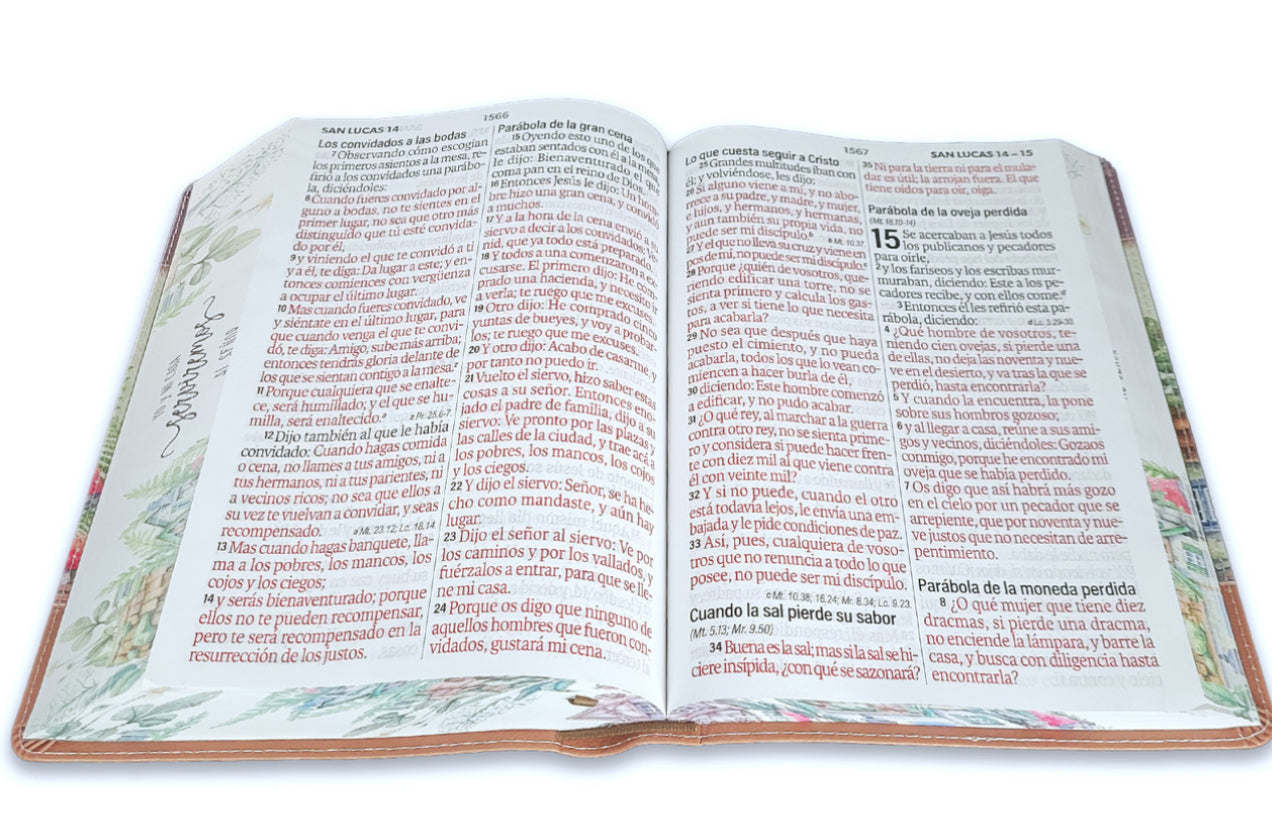 SAN LUCAS 14
1566
Los convidados a las bodas
7 Observando cómo escogían
los primeros asientos a la mesa, re-
firió a los convidados una parábo-
la, diciéndoles:
8 Cuando fueres convidado por al-
guno a bodas, no te sientes en el
primer lugar, no sea que otro más
distinguido que tú esté convida-
do por él,
9 y viniendo el que te convidó a ti
y a él, te diga: Da lugar a este; y en-
tonces comiences con vergüenza
a ocupar el último lugar.
10 Mas cuando fueres convidado, ve
y siéntate en el último lugar, para
que cuando venga el que te convi-
dó, te diga: Amigo, sube más arriba;
entonces tendrás gloria delante de
los que se sientan contigo a la mesa.z
11 Porque cualquiera que se enalte-
ce, será humillado; y el que se hu-
milla, será enaltecido.a
z Pr. 25.6-7
12 Dijo también al que le había
convidado: Cuando hagas comida
o cena, no llames a tus amigos, ni a
tus hermanos, ni a tus parientes, ni
a vecinos ricos; no sea que ellos a
su vez te vuelvan a convidar, y seas
recompensado.
a Mt. 23.12; Lc. 18.14
13 Mas cuando hagas banquete, lla-
ma a los pobres, los mancos, los
cojos y los ciegos;
14 y serás bienaventurado; porque
ellos no te pueden recompensar,
pero te será recompensado en la
resurrección de los justos.
Parábola de la gran cena
15 Oyendo esto uno de los que
estaban sentados con él a la mesa,
le dijo: Bienaventurado el que
coma pan en el reino de Dios.
16 Entonces Jesús le dijo: Un hom-
bre hizo una gran cena, y convidó
a muchos.
17 Y a la hora de la cena envió a su
siervo a decir a los convidados: Ve-
nid, que ya todo está preparado.
18 Y todos a una comenzaron a ex-
cusarse. El primero dijo: He com-
prado una hacienda, y necesito ir
a verla; te ruego que me excuses.
19 Otro dijo: He comprado cinco
yuntas de bueyes, y voy a probar-
los; te ruego que me excuses.
20 Y otro dijo: Acabo de casarme, y
por tanto no puedo ir.
21 Vuelto el siervo, hizo saber estas
cosas a su señor. Entonces eno-
jado el padre de familia, dijo a su
siervo: Ve pronto por las plazas y
las calles de la ciudad, y trae acá a
los pobres, los mancos, los cojos
y los ciegos.
22 Y dijo el siervo: Señor, se ha he-
cho como mandaste, y aún hay
lugar.
23 Dijo el señor al siervo: Ve por
los caminos y por los vallados, y
fuérzalos a entrar, para que se lle-
ne mi casa.
24 Porque os digo que ninguno de
aquellos hombres que fueron con-
vidados, gustará mi cena.
1567
SAN LUCAS 14 – 15
Lo que cuesta seguir a Cristo
25 Grandes multitudes iban con
él; y volviéndose, les dijo:
26 Si alguno viene a mí, y no abo-
rrece a su padre, y madre, y mujer,
e hijos, y hermanos, y hermanas,
y aun también su propia vida, no
puede ser mi discípulo.b
b Mt. 10.37
27 Y el que no lleva su cruz y viene en
pos de mí, no puede ser mi discípulo.c
28 Porque ¿quién de vosotros, que-
riendo edificar una torre, no se
sienta primero y calcula los gas-
tos, a ver si tiene lo que necesita
para acabarla?
29 No sea que después que haya
puesto el cimiento, y no pueda
acabarla, todos los que lo vean co-
miencen a hacer burla de él,
30 diciendo: Este hombre comenzó
a edificar, y no pudo acabar.
31 ¿O qué rey, al marchar a la guerra
contra otro rey, no se sienta prime-
ro y considera si puede hacer fren-
te con diez mil al que viene contra
él con veinte mil?
32 Y si no puede, cuando el otro
está todavía lejos, le envía una em-
bajada y le pide condiciones de paz.
33 Así, pues, cualquiera de voso-
tros que no renuncia a todo lo que
posee, no puede ser mi discípulo.
c Mt. 10.38; 16.24; Mr. 8.34; Lc. 9.23
Cuando la sal pierde su sabor
(Mt. 5.13; Mr. 9.50)
34 Buena es la sal; mas si la sal se hi-
ciere insípida, ¿con qué se sazonará?
35 Ni para la tierra ni para el mula-
dar es útil; la arrojan fuera. El que
tiene oídos para oír, oiga.
Parábola de la oveja perdida
(Mt. 18.10-14)
15 Se acercaban a Jesús todos
los publicanos y pecadores
para oírle,
2 y los fariseos y los escribas mur-
muraban, diciendo: Este a los pe-
cadores recibe, y con ellos come.d
3 Entonces él les refirió esta pa-
rábola, diciendo:
d Lc. 5.29-30
4 ¿Qué hombre de vosotros, te-
niendo cien ovejas, si pierde una
de ellas, no deja las noventa y nue-
ve en el desierto, y va tras la que se
perdió, hasta encontrarla?
5 Y cuando la encuentra, la pone
sobre sus hombros gozoso;
6 y al llegar a casa, reúne a sus ami-
gos y vecinos, diciéndoles: Gozaos
conmigo, porque he encontrado mi
oveja que se había perdido.
7 Os digo que así habrá más gozo
en el cielo por un pecador que se
arrepiente, que por noventa y nue-
ve justos que no necesitan de arre-
pentimiento.
Parábola de la moneda perdida
8 ¿O qué mujer que tiene diez
dracmas, si pierde una dracma,
no enciende la lámpara, y barre la
casa, y busca con diligencia hasta
encontrarla?
YO Y MI CASA
serviremos
AL SEÑOR